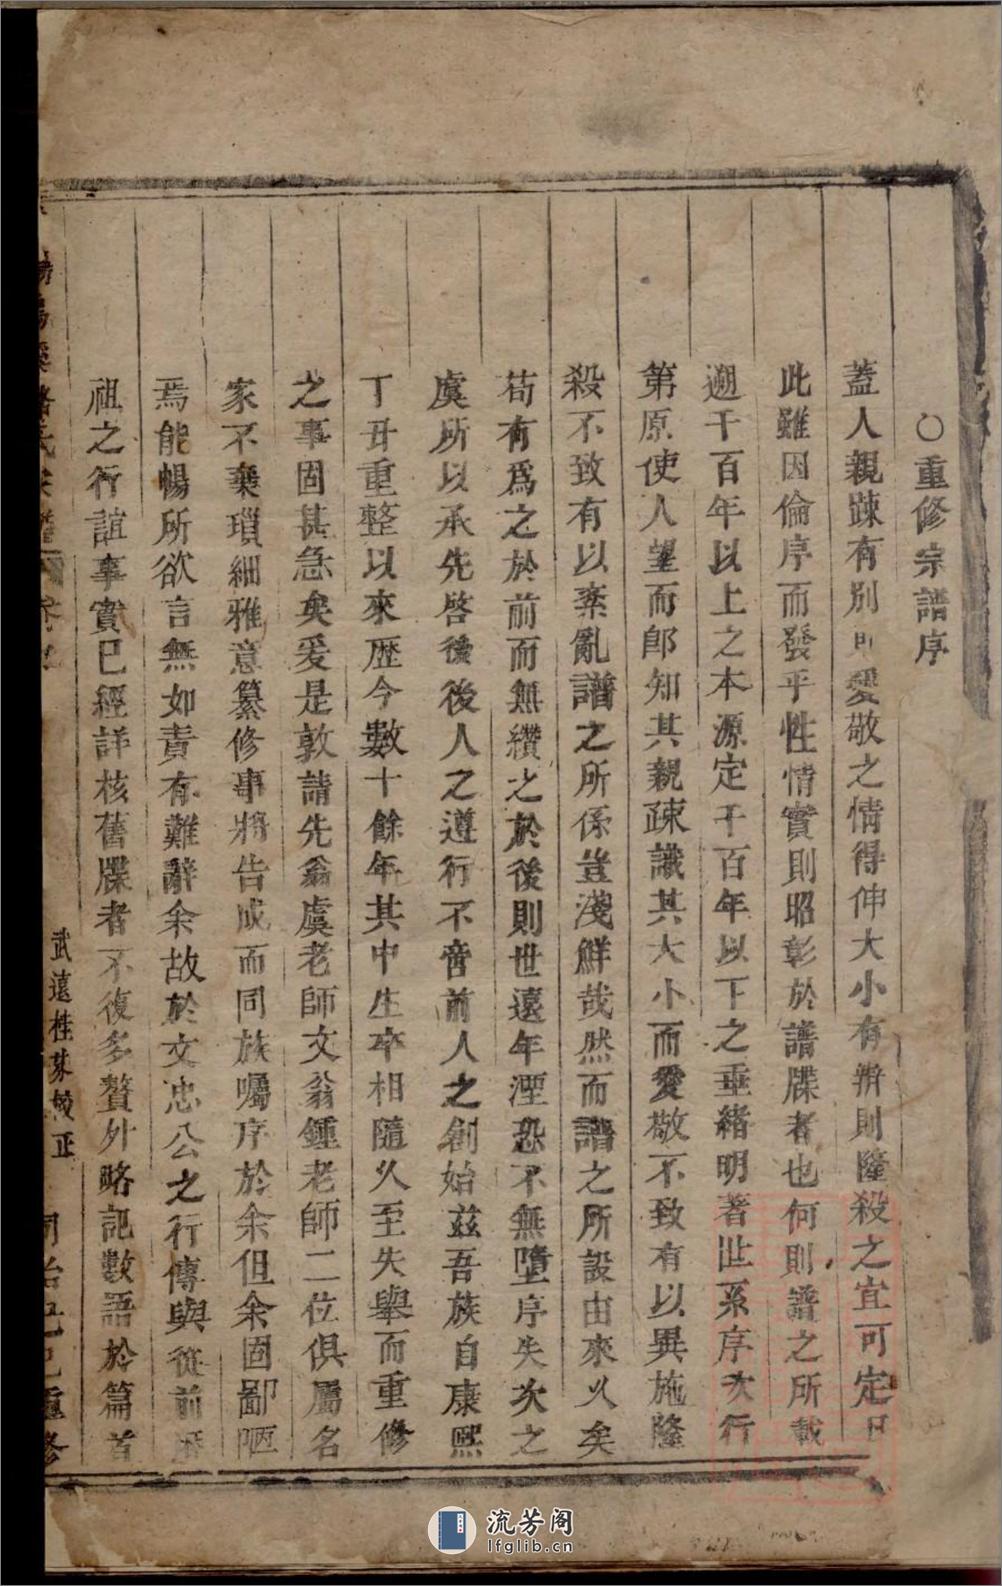 ○重修宗譜序
蓋人親踈有別則愛敬之情得伸大小有辨則隆殺之宜可定
此雖因倫序而發乎性情實則昭彰於譜牒者也何則譜之所載
遡千百年以上之本源定千百年以下之垂緒明著世系序次行
第原使人望而郎知其親疎識其大小而愛敬不致有以異施隆
殺不致有以紊亂譜之所係豈淺鮮哉然而譜之所設由來乆矣
茍有爲之於前而無纘之於後則世遠年湮恐不無墮序失次之
虞所以承先啓後後人之遵行不啻前人之創始茲吾族自康熙
丁丑重整以來歷今數十餘年其中生卒相隨乆至失舉而重修
之事固甚急矣爰是敦請先翁虞老師文翁鍾老師二位俱屬名
家不棄瑣細雅意纂修事將告成而同族囑序於余但余固鄙陋
焉能暢所欲言無如責有難辭余故於文忠公之行傳與從前歷
祖之行誼事實已經詳核舊牒者不復多贅外略記數語於篇首
武遠桂芬校正
同治己巳重修
流芳阁
lfglib.cn